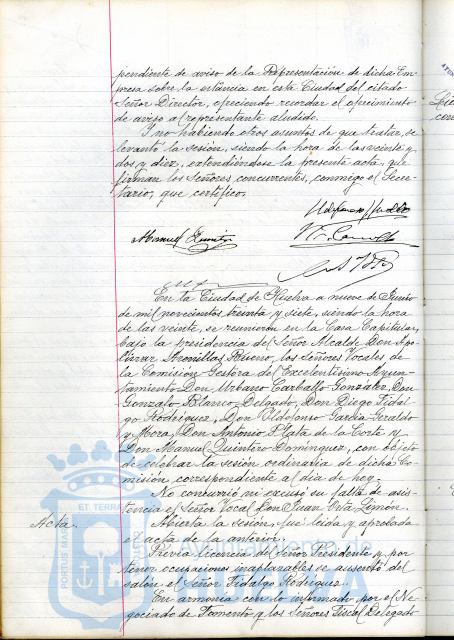 pendiente de aviso de la Representación de dicha Em-
presa sobre la estancia en esta Ciudad del citado
Señor Director, ofreciendo recordar el ofrecimiento
de aviso al representante aludido.
Y no habiendo otros asuntos de que tratar, se
levantó la sesión, siendo la hora de las veinte y
dos y diez, extendiéndose la presente acta, que
firman los Señores concurrentes, conmigo el Secre-
tario, que certifico.
Manuel Quintero
En la Ciudad de Huelva a nueve de Junio
de mil novecientos treinta y siete, siendo la hora
de las veinte, se reunieron en la Casa Capitular,
bajo la presidencia del Señor Alcalde Don Apo-
linar Arenillas Bueno, los Señores Vocales de
la Comisión Gestora del Excelentísimo Ayun-
tamiento Don Urbano Carballo González, Don
Gonzalo Blanco Delgado, Don Diego Fidal-
go Rodríguez, Don Ildefonso García Geraldo
y Mora, Don Antonio Plata de la Corte y
Don Manuel Quintero Domínguez, con objeto
de celebrar la sesión ordinaria de dicha Co-
misión correspondiente al día de hoy.
No concurrió ni excusó su falta de asis-
tencia el Señor Vocal Don Juan Oria Limón.
Acta.
Abierta la sesión, fue leída y aprobada
el acta de la anterior.
Previa licencia del Señor Presidente y por
tener ocupaciones inaplazables se ausentó del
salón el Señor Fidalgo Rodríguez.
En armonía con lo informado por el Ne-
gociado de Fomento y los Señores Fiscal Delegado
PORTUS MARIS ET TERRAE